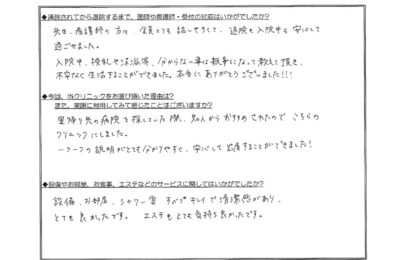 ◆通院されてから退院するまで、医師や看護師・受付の対応はいかがでしたか?
先生、看護師の方々、全員とても話しやすくて、通院も入院中も安心して
過ごせました。
入院中、授乳や沐浴等、分からない事は親身になって教えて頂き、
不安なく生活することができました。本当にありがとうございました!!!
◆今回、当クリニックをお選び頂いた理由は?
また、実際に利用してみて感じたことはございますか?
里帰り先の病院を探していた際、知人からおすすめされたのでこちらの
クリニックにしました。
一つ一つの説明がとても分かりやすく、安心して出産することができました!
◆設備やお部屋、お食事、エステなどのサービスに関してはいかがでしたか?
設備、お部屋、シャワー室すべてキレイで清潔感があり、
とても良かったです。エステもとても気持ち良かったです。